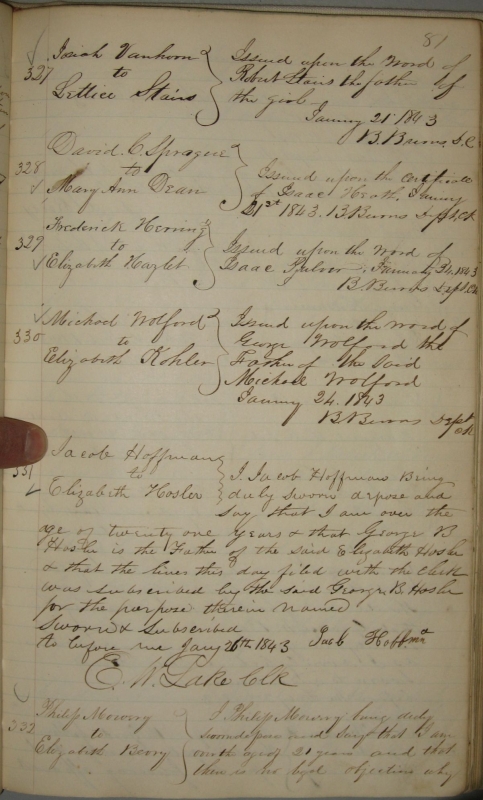 81
327
Josiah Vanhorn
to
Lettice Stairs
Issued upon the word of
Robert Stairs the father of
the girl
Janury 21 1843
B. Burns D.C.
328
David C Sprague
to
Mary Ann Dean
Issued upon the certificate
of Isaac Heath. Janury
21st 1843. B Burns Dept. Clk
329
Frederick
to
Elizabeth Hazlet
Issued upon the word of
Isaac January 24. 1843
B. Burns Dept Clk
330
Michael Wolford
to
Elizabeth Kohler
Issued upon the word of
George Wolford the
Father of the said
Michael Wolford
Janury 24. 1843
B Burns Dept
Clk
331
Jacob Hoffman
to
Elizabeth Hosler
I Jacob Hoffman Being
duly sworn depose and
Say that I am over the
age of twenty one years & that George B
Hosler is the Father of the said Elizabeth Hosler
& that the lines this day filed with the Clerk
was subscribed by the said George B. Hosler
for the purpose therein named
Sworn & Subscribed
to before me Jany 26th 1843 Jacob Hoffman
E. W. Lake Clk
332
Philip Mowery
to
Elizabeth Beory
I Philip Mowery being duly
sworn depose and say that I am
over the age of 21 years and that
there is no legal objection why